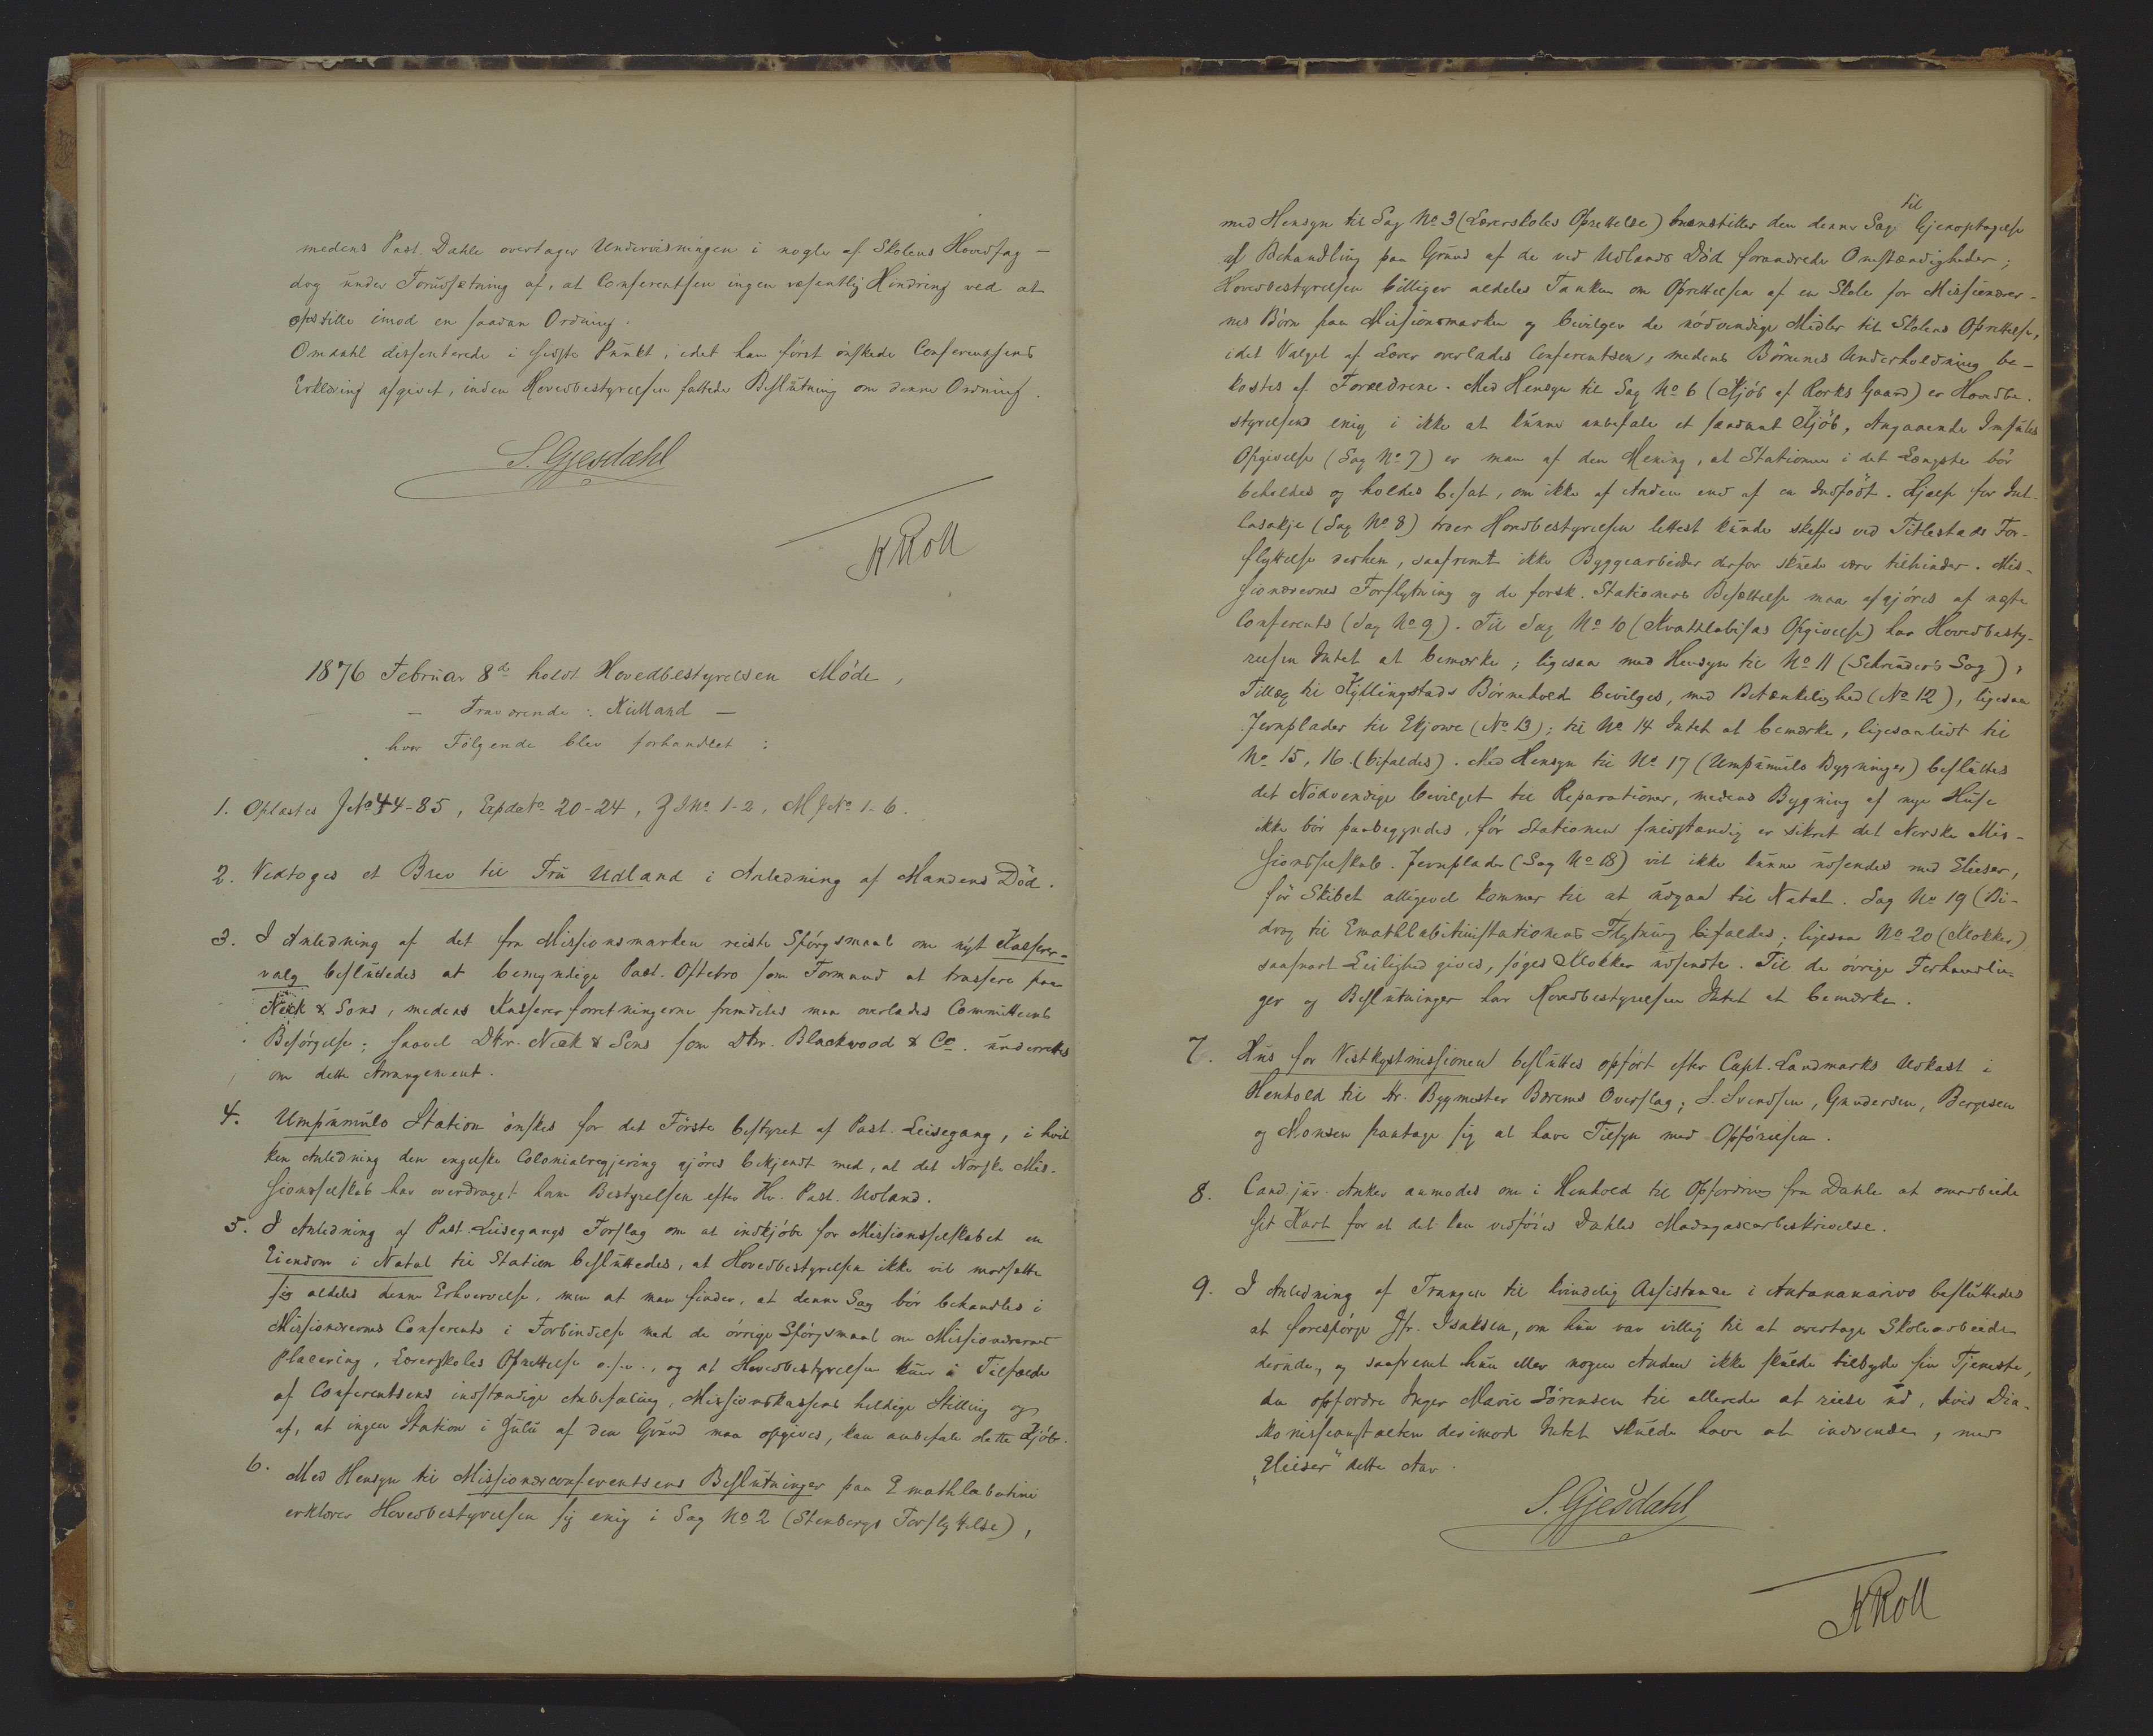 medens Past. Dahle overtager Undervisningen i nogle af Skolens Hovedfag —
dog under Forudsætning af, at Conferentsen ingen væsentlig Hindring ved at
opstille imod en saadan Ordning.
Omdahl dissenterede i sidste Punkt, idet han först önskede Conferentsens
Erklæring afgivet, inden Hovedbestyrelsen fattede Beslutning om denne Ordning.
S. Gjesdahl
K Roll
1876 Februar 8de holdt Hovedbestyrelsen Möde,
— Fraværende: Kielland —
hvor Fölgende blev forhandlet:
1. Oplæstes J№ 44-85, Expd№ 20-24, Z J№ 1-2, M J№ 1-6.
2. Vedtoges et Brev til Fru Udland i Anledning af Mandens Död.
3. I Anledning af det fra Missionsmarken reiste Spörgsmaal om nyt Kasserer-
valg besluttedes at bemyndige Past. Oftebro som Formand at trassere paa
Nærk & Sons, medens Kassererforretningerne fremdeles maa overlades Committeens
Besörgelse; saavel Dhrr. Næk & Sons som Dhrr. Blackwood & Co. underrettes
om dette Arrangement.
4. Umpumulo Station önskes for det Förste bestyret af Past. Leisegang, i hvil
ken Anledning den engelske Colonialregjering gjöres bekjendt med, at det Norske Mis-
sionsselskab har overdraget ham Bestyrelsen efter Hr. Past. Udland.
5. I Anledning af Past. Leisegangs Forslag om at indkjöbe for Missionsselskabet en
Eiendom i Natal til Station besluttedes, at Hovedbestyrelsen ikke vil modsætte
sig aldeles denne Erhvervelse, men at man finder, at denne Sag bör behandles i
Missionærernes Conferents i Forbindelse med de övrige Spörgsmaal om Missionærernes
Placering, Lærerskoles Oprettelse o.s.v., og at Hovedbestyrelsen kun i Tilfælde
af Conferentsens indstændige Anbefaling, Missionskassens heldige Stilling og
af, at ingen Station i Zulu af den Grund maa opgives, kan anbefale dette Kjöb.
6. Med Hensyn til Missionærconferentsens Beslutninger paa Emathlabatini
erklærer Hovedbestyrelsen sig enig i Sag № 2 (Stenbergs Forflyttelse),
med Hensyn til Sag № 3 (Lærerskoles Oprettelse) henstiller den denne Sag til Gjenoptagelse
af Behandling paa Grund af de ved Udlands Död forandrede Omstændigheder;
Hovedbestyrelsen billiger aldeles Tanken om Oprettelsen af en Skole for Missionærer-
nes Börn paa Missionsmarken og bevilger de nödvendige Midler til Skolens Oprettelse,
idet Valget af Lærer overlades Conferentsen, medens Börnenes Underholdning be-
kostes af Forældrene. Med Hensyn til Sag № 6 (Kjöb af Rorks Gaard) er Hovedbe-
styrelsen enig i ikke at kunne anbefale et saadant Kjöb, Angaaende Imfules
Opgivelse (Sag № 7) er man af den Mening, at Stationen i det Længste bör
beholdes og holdes besat, om ikke af Anden end af en Indfödt. Hjælp for Int-
lasakje (Sag № 8) troer Hovedbestyrelsen lettest kunde skaffes ved Titlestads For-
flyttelse derhen, saafremt ikke Byggearbeider derfor skulde være tilhinder. Mis-
sionærernes Forflytning og de forsk. Stationers Besættelse maa afgjöres af næste
Conferents (Sag № 9). Til Sag № 10 (Kvattlabisas Opgivelse) har Hovedbesty-
relsen Intet at bemærke; ligesaa med Hensyn til № 11 (Schreuders Sag);
Tillæg til Kyllingstads Börnehold bevilges, med Betænkelighed (№ 12), ligesaa
Jernplader til Ekjowe (№ 13); til № 14 Intet at bemærke, ligesaalidt til
№ 15, 16. (bifaldes). Med Hensyn til № 17 (Umpumulo Bygninger) besluttes
det Nödvendige bevilget til Reparationer, medens Bygning af nye Huse
ikke bör paabegyndes, för Stationen fuldstændig er sikret det Norske Mis-
sionsselskab. Jernplader (Sag № 18) vil ikke kunne udsendes med Elieser,
för Skibet alligevel kommer til at udgaa til Natal. Sag № 19 (Bi-
drag til Emathlabatinistationens Flytning bifaldes; ligesaa № 20 (Klokker)
saasnart Leilighed gives, söges Klokker udsendte. Til de övrige Forhandlin-
ger og Beslutninger har Hovedbestyrelsen Intet at bemærke.
7. Hus for Vestkystmissionen besluttes opfört efter Capt. Landmarks Udkast i
Henhold til Hr. Bygmester Bærems Overslag; S. Svendsen, Gundersen, Bergesen
og Monsen paatage sig at have Tilsyn med Opförelsen.
8. Cand. jur. Anker anmodes om i Henhold til Opfordring fra Dahle at omarbeide
sit Kart for at det kan vedföies Dahles Madagascarbeskrivelse.
9. I Anledning af Trangen til kvindelig Assistance i Antananarivo besluttedes
at forespörge Jfr. Isaksen, om hun var villig til at overtage Skolearbeide
derude, og saafremt hun eller nogen Anden ikke skulde tilbyde sin Tjeneste,
da opfordre Inger Marie Sörensen til allerede at reise ud, hvis Dia-
konisseanstalten derimod Intet skulde have at indvende, med
„Elieser" dette Aar.
S. Gjesdahl
K Roll